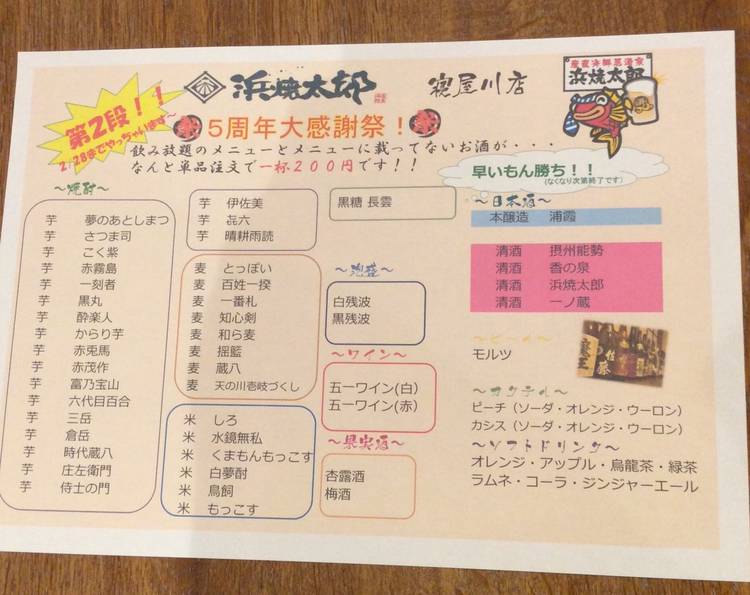 第2段！！
2/28までやってちゃいます～
浜焼太郎
寝屋川店
産直海鮮居酒家
浜焼太郎
5周年大感謝祭！
飲み放題のメニューとメニューに載ってないお酒が、
なんと単品注文で一杯200円です！！
早いもん勝ち！！
(なくなり次第終了です)
～焼酎～
芋 夢のあとしまつ
芋 さつま司
芋 こく紫
芋 赤霧島
芋 一刻者
芋 黒丸
芋 酔楽人
芋 からり芋
芋 赤兎馬
芋 赤茂作
芋 富乃宝山
芋 六代目百合
芋 三岳
芋 倉岳
芋 時代蔵八
芋 庄左衛門
芋 侍士の門
芋 伊佐美
芋 㐂六
芋 晴耕雨読
麦 とっぽい
麦 百姓一揆
麦 一番札
麦 知心剣
麦 和ら麦
麦 揺籃
麦 蔵八
麦 天の川壱岐づくし
米 しろ
米 水鏡無私
米 くまもんもっこす
米 白夢酎
米 鳥飼
米 もっこす
黒糖 長雲
～泡盛～
白残波
黒残波
～ワイン～
五一ワイン(白)
五一ワイン(赤)
～果実酒～
杏露酒
梅酒
～日本酒～
本醸造 浦霞
清酒 摂州能勢
清酒 香の泉
清酒 浜焼太郎
清酒 一ノ蔵
～ビール～
モルツ
～カクテル～
ピーチ（ソーダ・オレンジ・ウーロン）
カシス（ソーダ・オレンジ・ウーロン）
～ソフトドリンク～
オレンジ・アップル・烏龍茶・緑茶
ラムネ・コーラ・ジンジャーエール